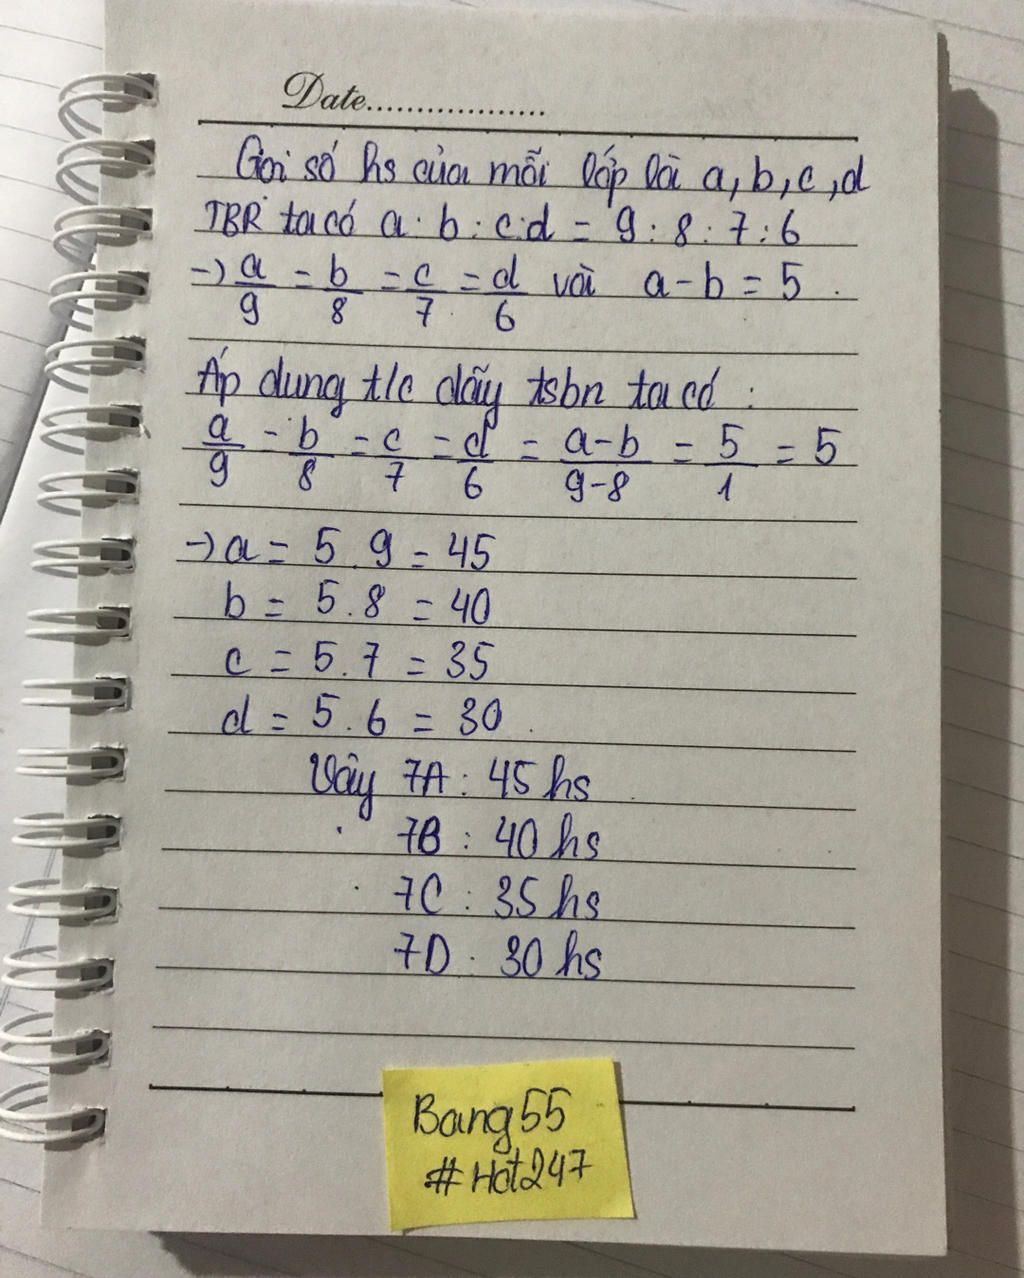 Date..................
Gọi số hs của mỗi lớp là a, b, c, d
TBR ta có a : b : c : d = 9 : 8 : 7 : 6
→) a/9 = b/8 = c/7 = d/6 và a - b = 5.
Áp dụng t/c dãy tsbn ta có :
a/9 = b/8 = c/7 = d/6 = a-b/9-8 = 5/1 = 5
→) a = 5 . 9 = 45
b = 5 . 8 = 40
c = 5 . 7 = 35
d = 5 . 6 = 30.
Vậy 7A : 45 hs
7B : 40 hs
7C : 35 hs
7D : 30 hs
Bang55
#Hot247